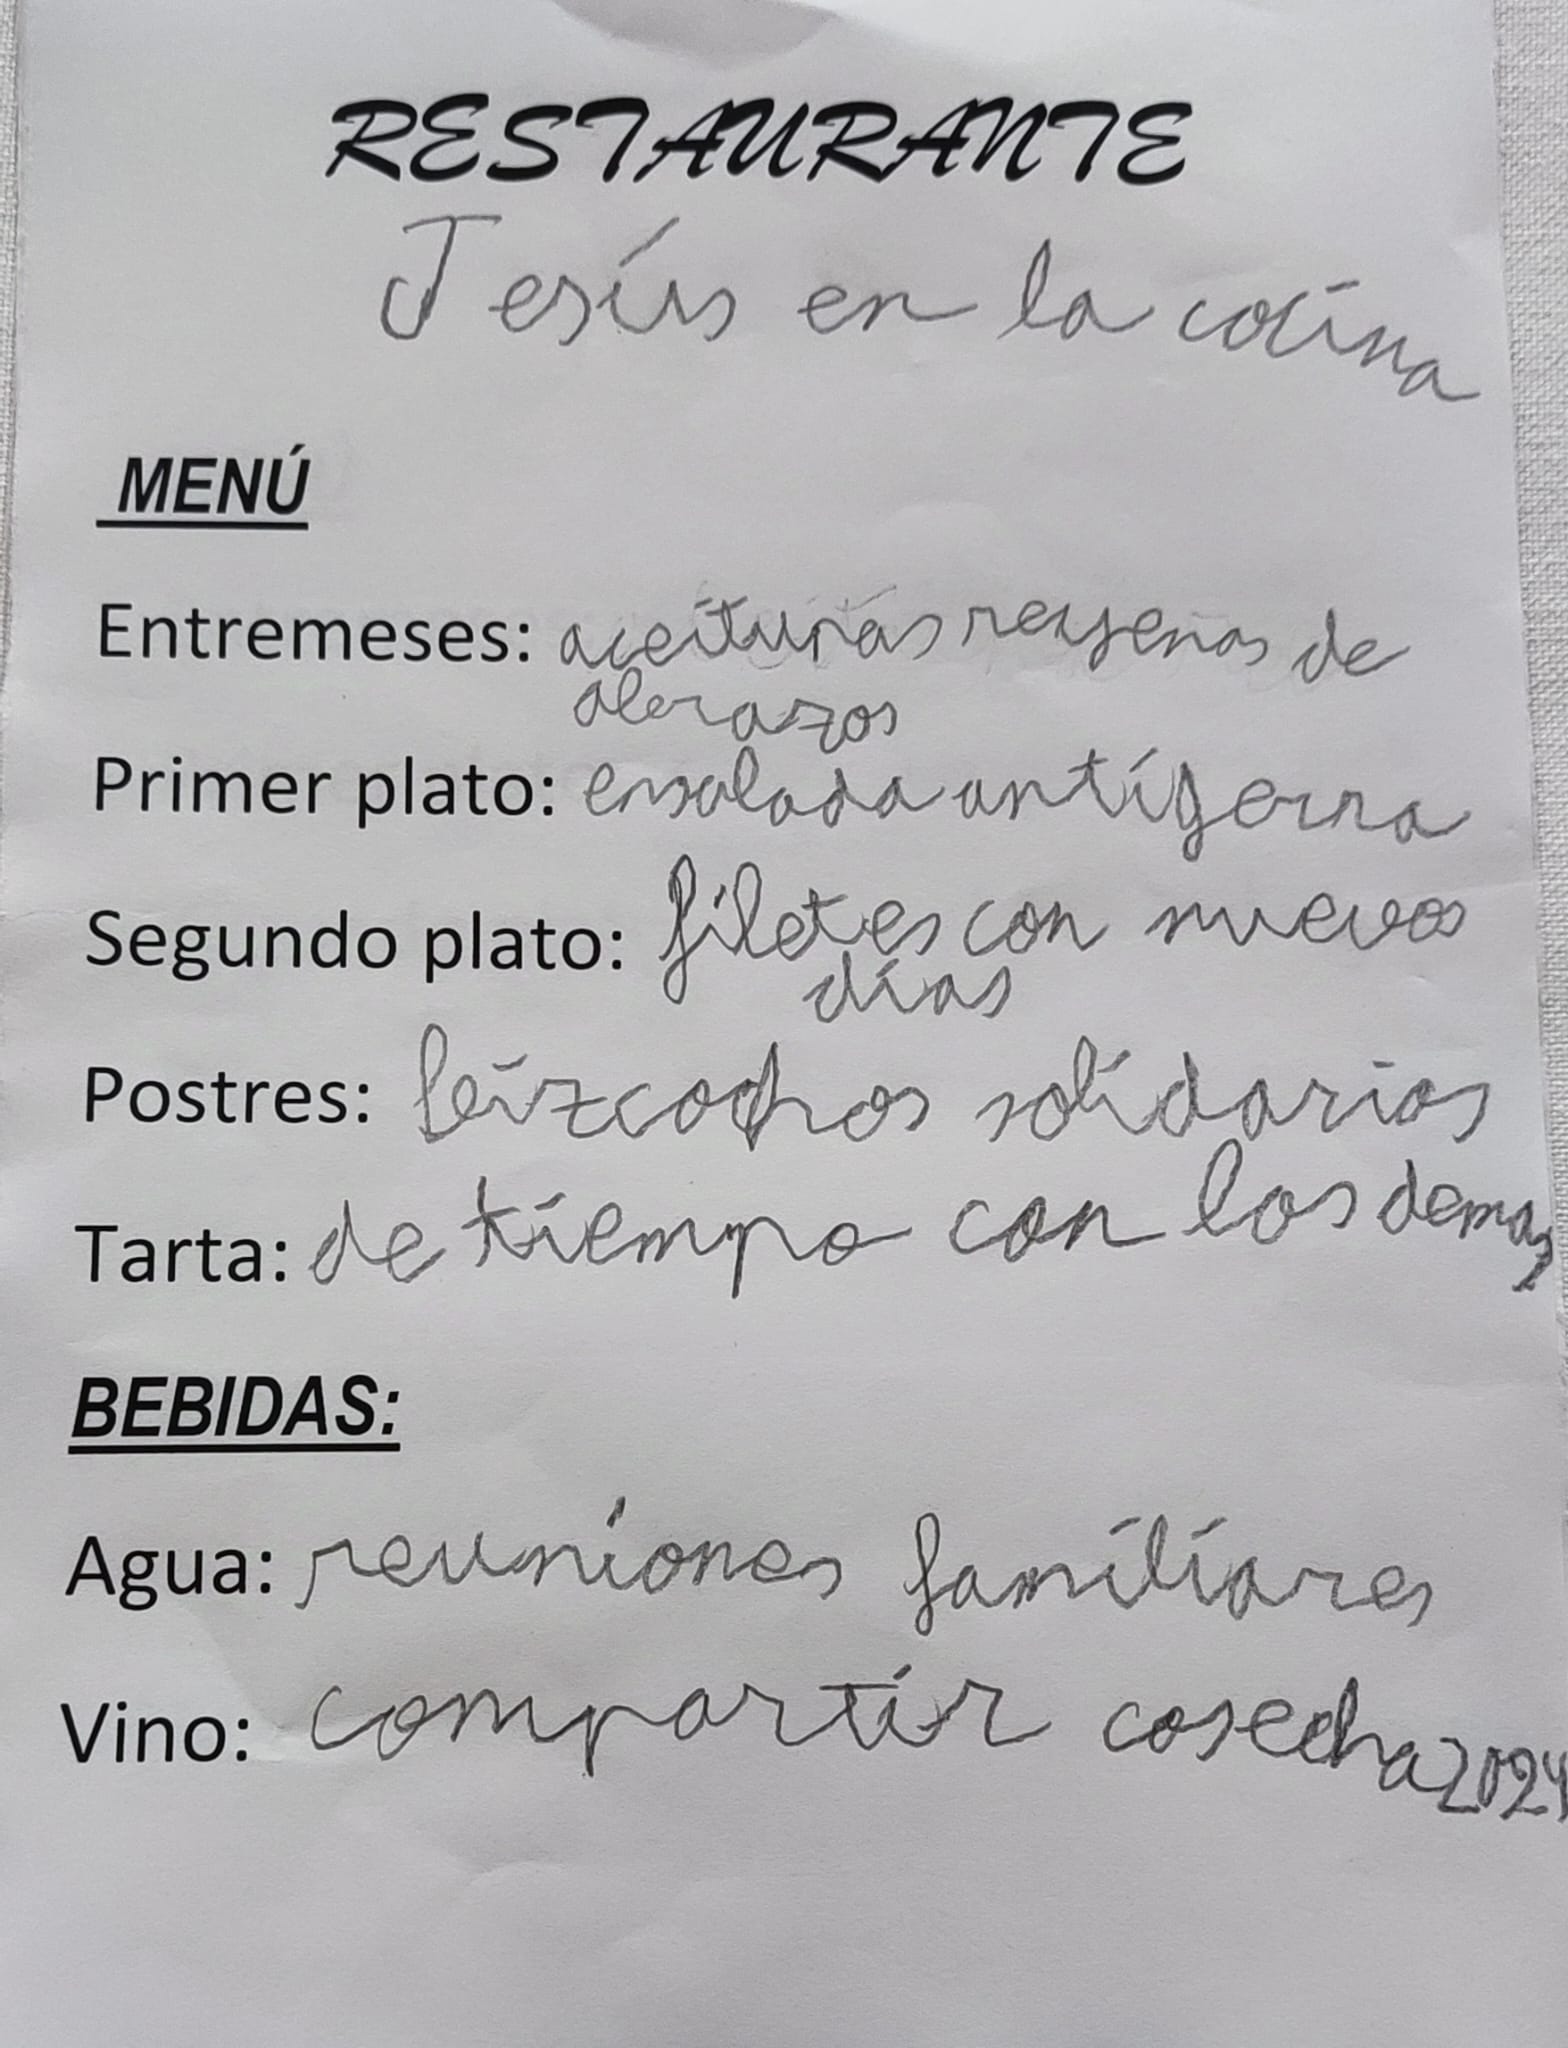 RESTAURANTE
Jesús en la cocina
MENÚ
Entremeses: aceitunas reyenas de
abrazos
Primer plato: ensalada antigerra
Segundo plato: filetes con nuevos
días
Postres: bizcochos solidarios
Tarta: de tiempo con los demas
BEBIDAS:
Agua: reuniones familiares
Vino: compartir cosecha 2024